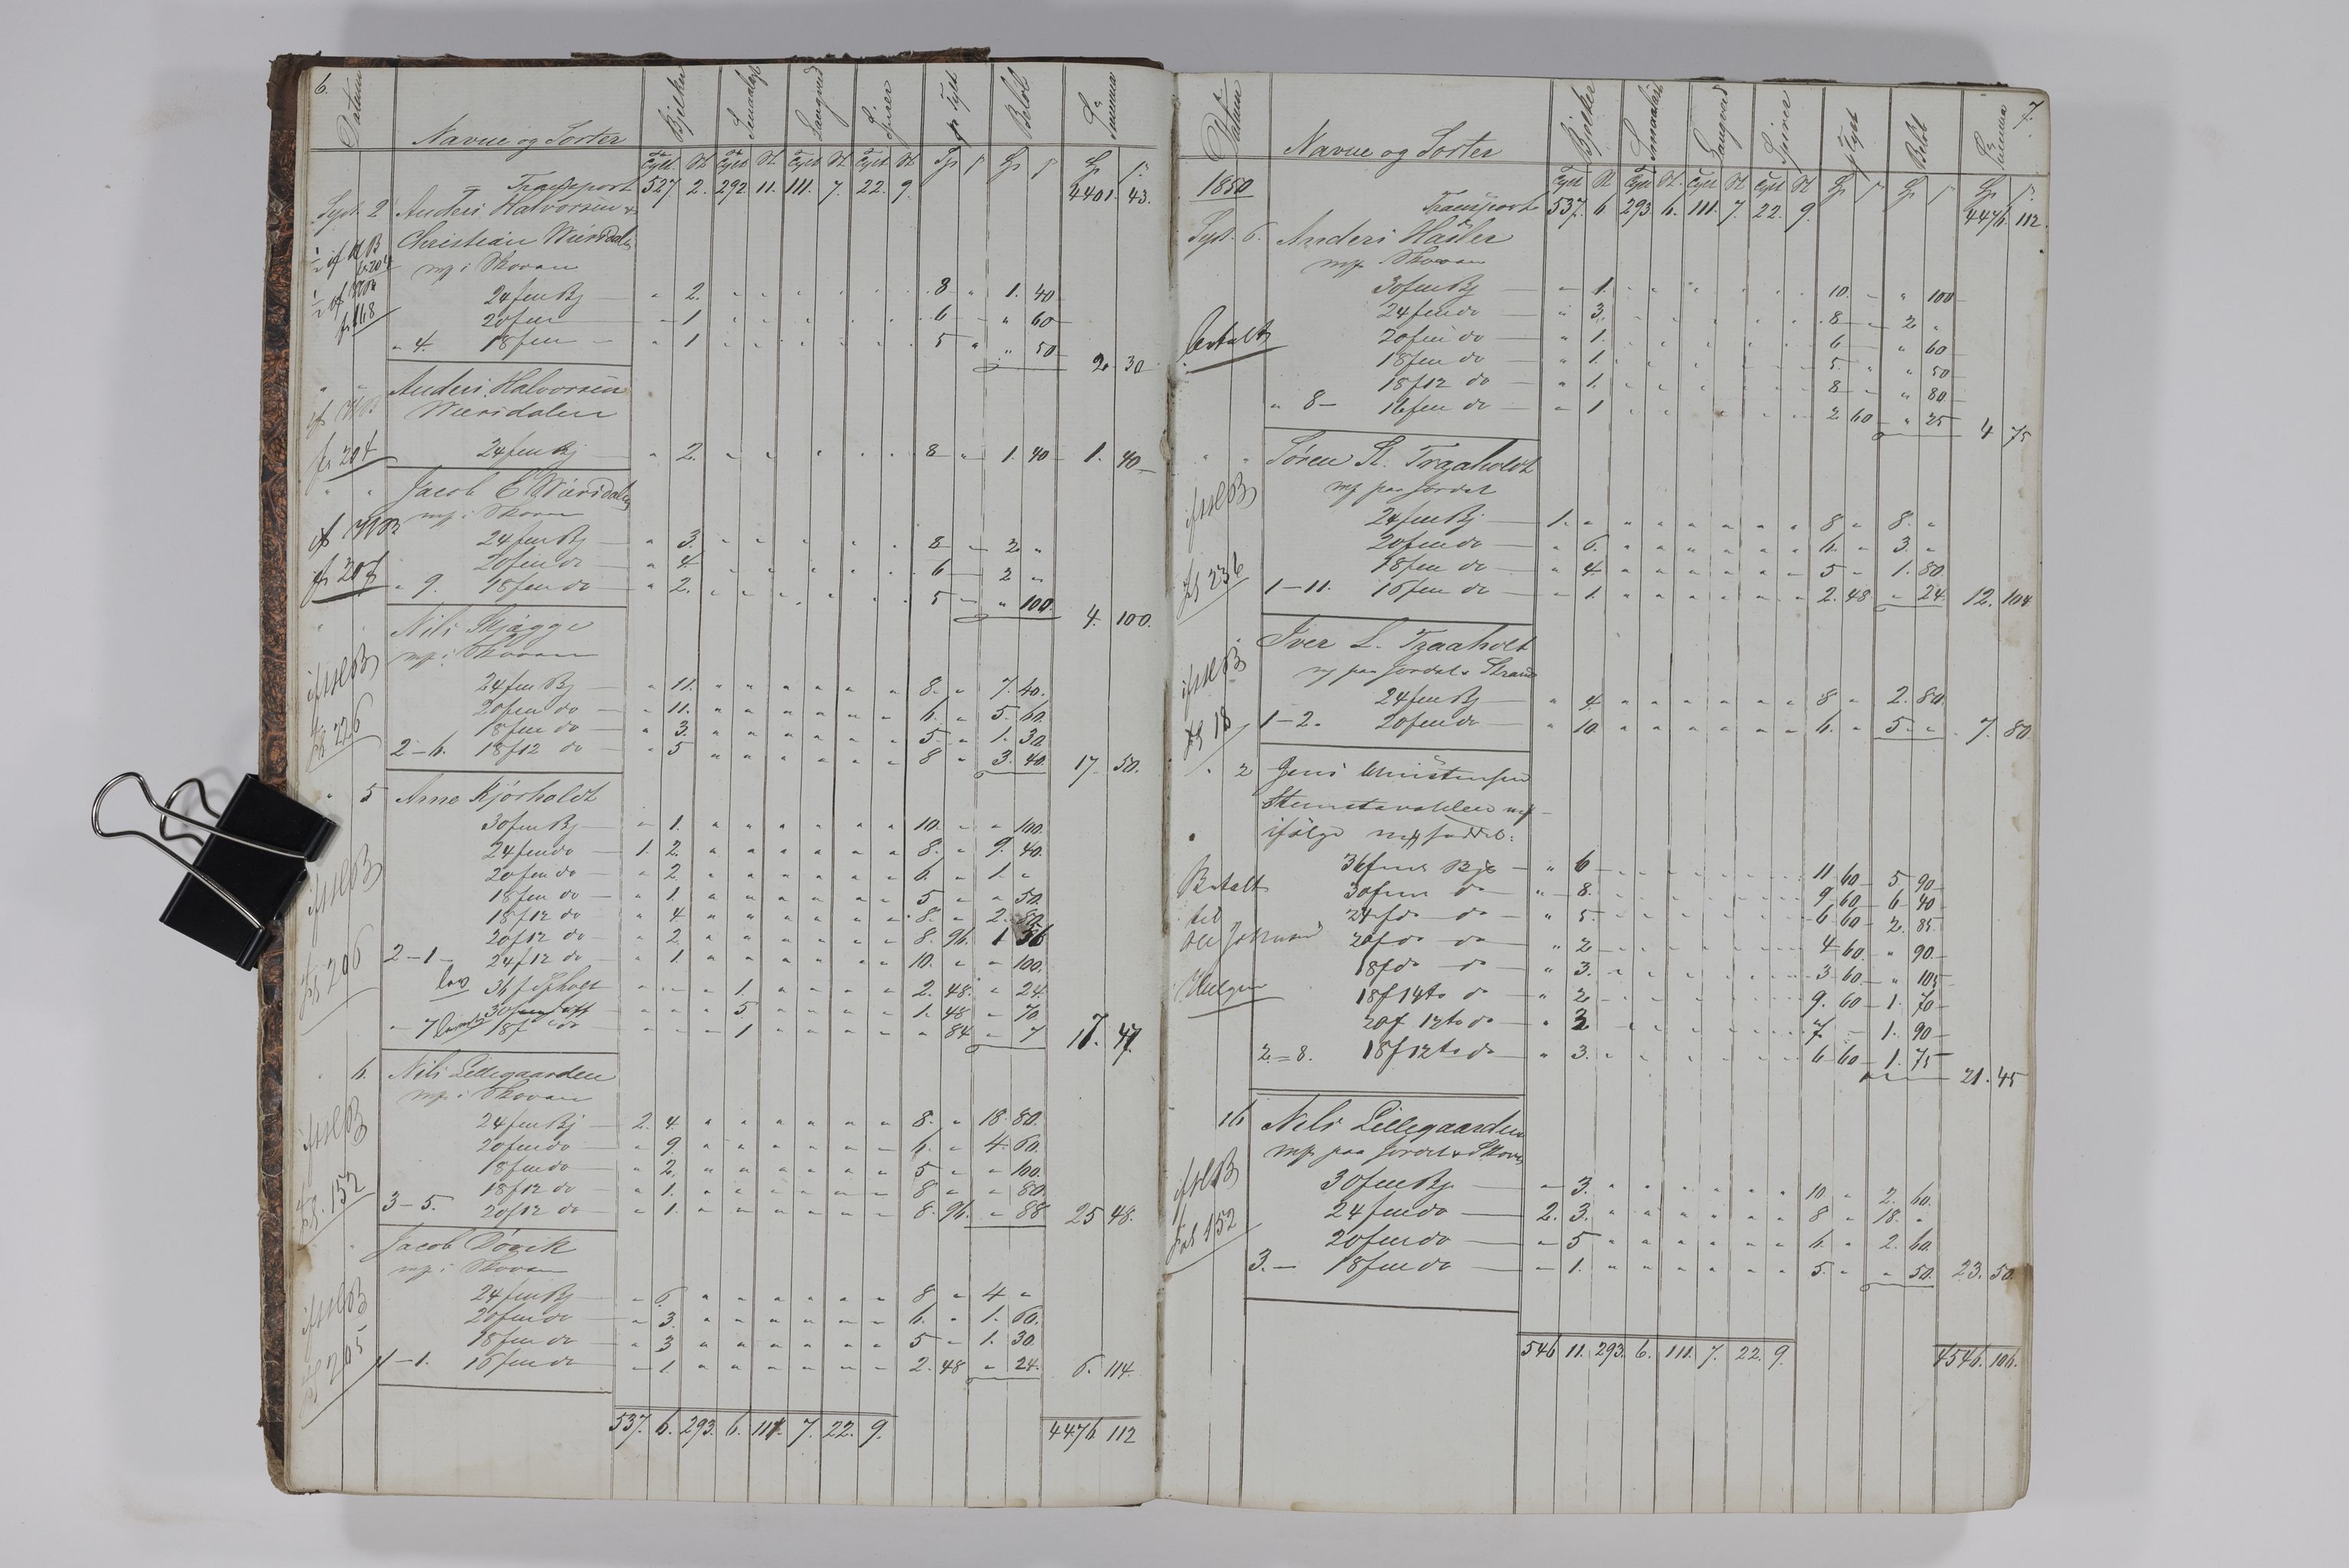 6.
Datum Navne og Sorter Bjelker Smaalast Langved Spirer pr Tylt Beløb Summa
Tylt St Tylt St Tylt St Tylt St Sp ß Sp ß Sp ß
Transport 527 2. 292 11. 111. 7. 22. 9. 4401. 43.
Sept. 2 Anders Halvorsen &
Christian
mp i Skoven
24 fm Bj " 2. 8 " 1. 40
20 fm " 1 6 " " 60
" 4. 18 fm " 1 5 " " 50 2. 30
Anders Halvorsen
24 fm Bj " 2. 8 " 1. 40 1. 40
fs 204
Jacob E
mp i Skoven
24 fm Bj " 3. 8 " 2 "
20 fm do " 4 6 2 "
" 9. 18 fm do " 2. 5 " " 100. 4. 100.
Nils
mp i Skoven
24 fm Bj " 11. 8. " 7. 40.
20 fm do " 11. 6. " 5. 60.
18 fm do " 3. 5 " 1. 30
2-6. 18 f 12 do " 5 8 " 3. 40. 17. 50.
fs 226
" 5 Arne Kjørholdt
30 fm Bj " 1. 10. " " 100.
24 fm do 1. 2. 8. " 9. 40.
20 fm do " 2. 6. " 1. "
18 fm do " 1. 5 " " 50.
18 f 12 do " 4 8. " 2. 80.
20 f 12 do " 2. 8. 96. 1 56
2-1- 24 f 12 do " 1. 10. " " 100.
36 f 1. 2. 48. " 24.
30 5 1. 48 " 70.
" 7 18 f do 1 " 84 " 7 17. 47.
fs 206
" 6. Nils Lillegaarden
mp i Skoven
24 fm Bj 2. 4. 8. " 18. 80.
20 fm do " 9. 6. " 4. 60.
18 fm do " 2. 5 " " 100.
18 f 12 do " 1. 8 " " 80.
3-5. 20 f 12 do " 1. 8. 96. " 88 25 48.
fs. 152
Jacob Døvik
mp i Skoven
24 fm Bj " 6. 8 " 4 "
20 fm do " 3. 6. " 1. 60.
18 fm do " 3 5 " 1. 30.
1-1. 16 fm do " 1. 2. 48 " 24. 6. 114.
fs 205
537. 6. 293. 6. 111. 7. 22. 9. 4476 112
7.
Datum Navne og Sorter Bjelker Smaalast Langved Spirer pr Tylt Beløb Summa
Tylt St Tylt St. Tylt St Tylt St Sp ß Sp ß Sp ß
1850 Transport 537. 6 293. 6. 111. 7. 22. 9. 4476. 112.
Sept. 6. Anders
mp Skoven
30 fm Bj " 1. 10. " " 100
24 fm do " 3. 8 " 2 "
Betalt 20 fm do " 1. 6 " " 60
18 fm do " 1. 5. " " 50
18 f 12 do " 1. 8 " " 80
" 8- 16 fm do " 1 2 60 " 25 4 75
Søren St. Traaholdt
mp paa Jordet
24 fm Bj 1. " 8 " 8. "
20 fm do " 6. 6. " 3. "
18 fm do " 4. 5 " 1. 80.
1-11. 16 fm do " 1. 2. 48 " 24. 12. 104.
fs 236
Iver L. Traaholt
mp paa Jordet & Strand
24 fm Bj " 4. 8 " 2. 80.
1-2. 20 fm do " 10. 6. " 5. " 7. 80
fs 18
" 2 Jens Christensen
ifølge mp
36 fm Bjk " 6 11 60 5 90
Betalt 30 fm do " 8. 9 60 6 40
til 24 f do do " 5. 6 60 2. 85.
Ole 20 f do do " 2 4 60 " 90
18 f do do " 3. 3 60 " 105
18 f 14 to do " 2 9. 60 1. 70
20 f 12 to do " 3 7 " 1. 90
2=8. 18 f 12 to do " 3. 6 60 1. 75 21. 45
16 Nils Lillegaarden
mp paa Jordet & Skoven
30 fm Bj " 3. 10. " 2. 60.
24 fm do 2. 3. 8 " 18. "
20 fm do " 5 6. " 2. 60.
3.- 18 fm do " 1. 5. " " 50. 23. 50
fs 152
546 11. 293. 6. 111. 7. 22. 9. 4546. 106.